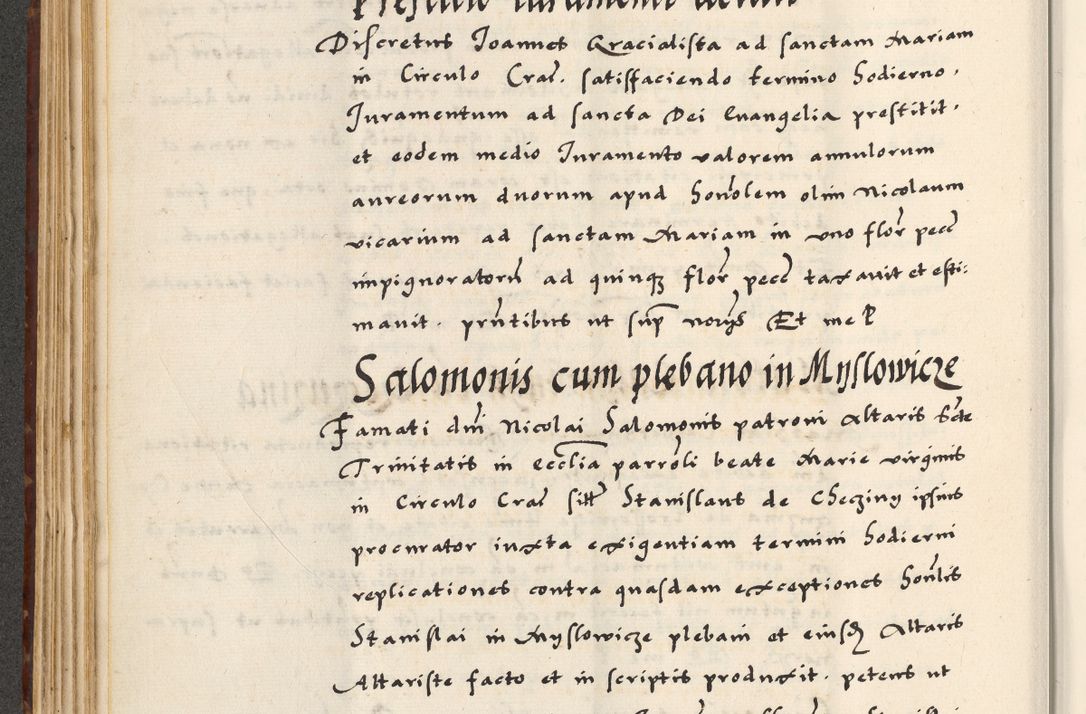 Prestitio Iuramenti
Discretus Ioannes Gracialista ad sanctam Mariam
in Circulo Crac̄. satisfaciendo termino hodierno.
Iuramentum ad sancta Dei Evangelia prestitit.
et eodem medio Iuramento valorem annulorum
aureorum duorum apud hon̄olem olim Nicolaum
vicarium ad sanctam Mariam in uno flor̄ pecc̄
impignoratorū ad quinq̨ flor̄ pecc̄ taxavit et esti:
mavit. prn̄tibus ut sup̄ Et me P
Salomonis cum plebano in Myslowicze
Famati dnī Nicolai Salomonis patroni Altaris Scte
Trinitatis in eccl̄ia parrōli beate Marie virginis
in Circulo Crac̄ sitt̄ Stanislaus de Checziny ipsius
procurator iuxta exigentiam termini hodierni
replicationes contra quasdam exceptiones hon̄lis
Stanislai in Myslowicze plebani et eiusdꝫ Altaris
Altariste facto et in scriptis produxit. petens ut